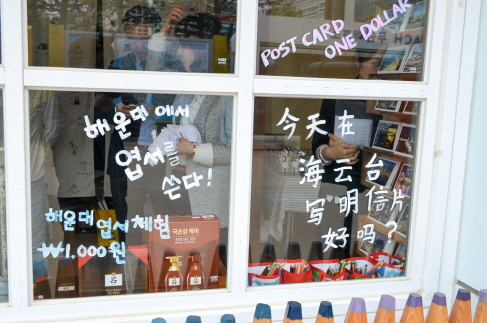 POST CARD
ONE DOLLAR
해운대에서
엽서를
쓴다!
해운대 엽서체험
₩1,000원
今天在
海云台
写明信片
好吗?
극손상 케어